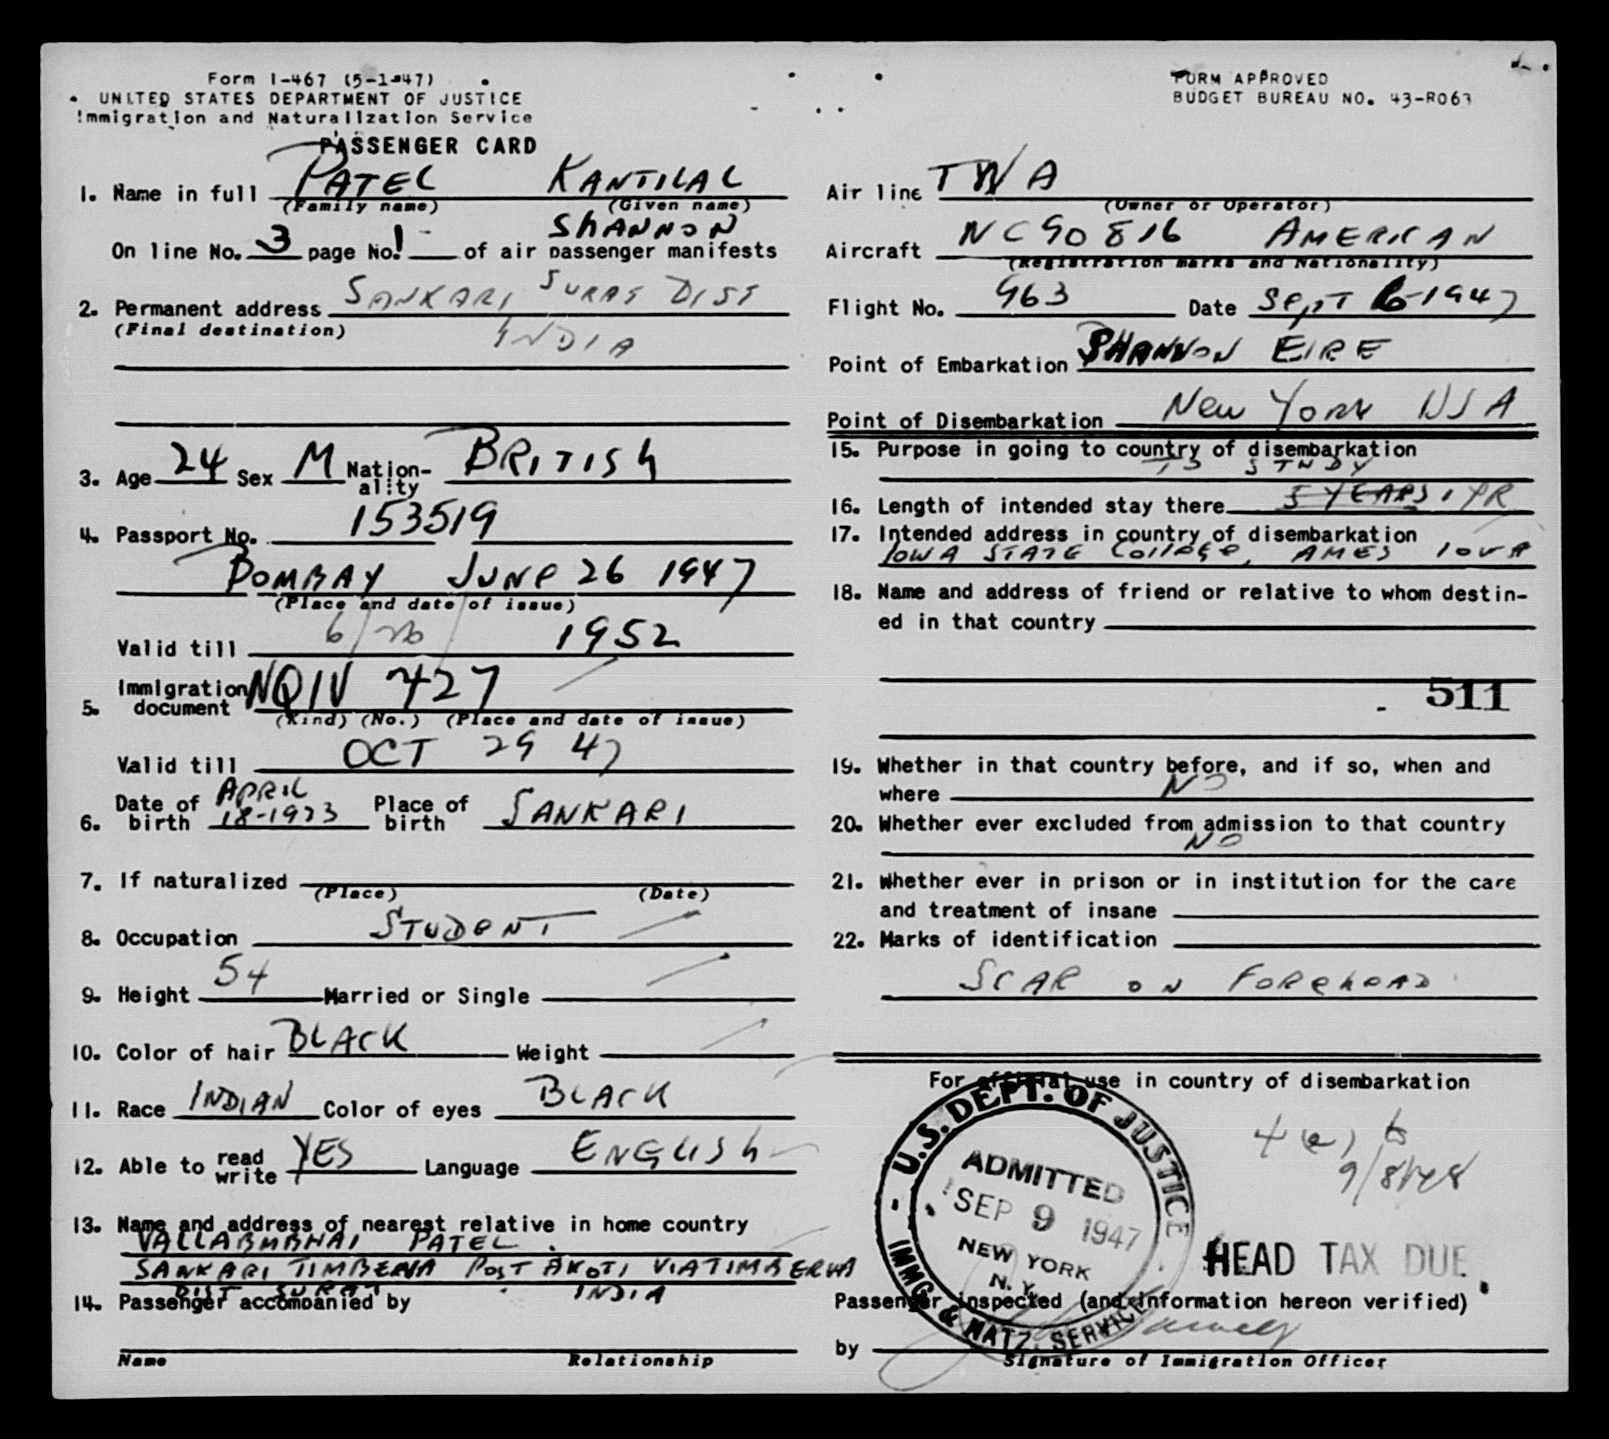 Form I-467 (5-1-47)
UNITED STATES DEPARTMENT OF JUSTICE
Immigration and Naturalization Service
PASSENGER CARD
FORM APPROVED
BUDGET BUREAU NO. 43-R063
1. Name in full PATEL KANTILAL
(Family name) (Given name)
SHANNON
On line No. 3 page No. 1 of air passenger manifests
2. Permanent address SANKARI SURAT DIST
(Final destination) INDIA
3. Age 24 Sex M Nation-ality BRITISH
4. Passport No. 153519
BOMBAY JUNE 26 1947
(Place and date of issue)
Valid till 6/26 1952
5. Immigration document NQIV 427
(Kind) (No.) (Place and date of issue)
Valid till OCT 29 47
6. Date of birth APRIL 18-1923 Place of birth SANKARI
7. If naturalized
(Place) (Date)
8. Occupation STUDENT
9. Height 54 Married or Single
10. Color of hair BLACK Weight
11. Race INDIAN Color of eyes BLACK
12. Able to read write YES Language ENGLISH
13. Name and address of nearest relative in home country
VALLABHBHAI PATEL
SANKARI TIMBERVA POST AKOTI VIA TIMBERVA
DIST SURAT INDIA
14. Passenger accompanied by
Name Relationship
Air line TWA
(Owner or Operator)
Aircraft NC90816 AMERICAN
(Registration marks and Nationality)
Flight No. 963 Date SEPT 6-1947
Point of Embarkation SHANNON EIRE
Point of Disembarkation New YORK USA
15. Purpose in going to country of disembarkation
TO STUDY
16. Length of intended stay there 5 YEARS 1 YR
17. Intended address in country of disembarkation
IOWA STATE College, AMES IOWA
18. Name and address of friend or relative to whom destin-
ed in that country
511
19. Whether in that country before, and if so, when and
where NO
20. Whether ever excluded from admission to that country
NO
21. Whether ever in prison or in institution for the care
and treatment of insane
22. Marks of identification
SCAR ON FOREHEAD
For official use in country of disembarkation
U.S. DEPT. OF JUSTICE
ADMITTED
SEP 9 1947
NEW YORK
N.Y.
IMMG. & NATZ. SERVICE
4(e) to
9/8/48
HEAD TAX DUE
Passenger inspected (and information hereon verified)
by
Signature of Immigration Officer